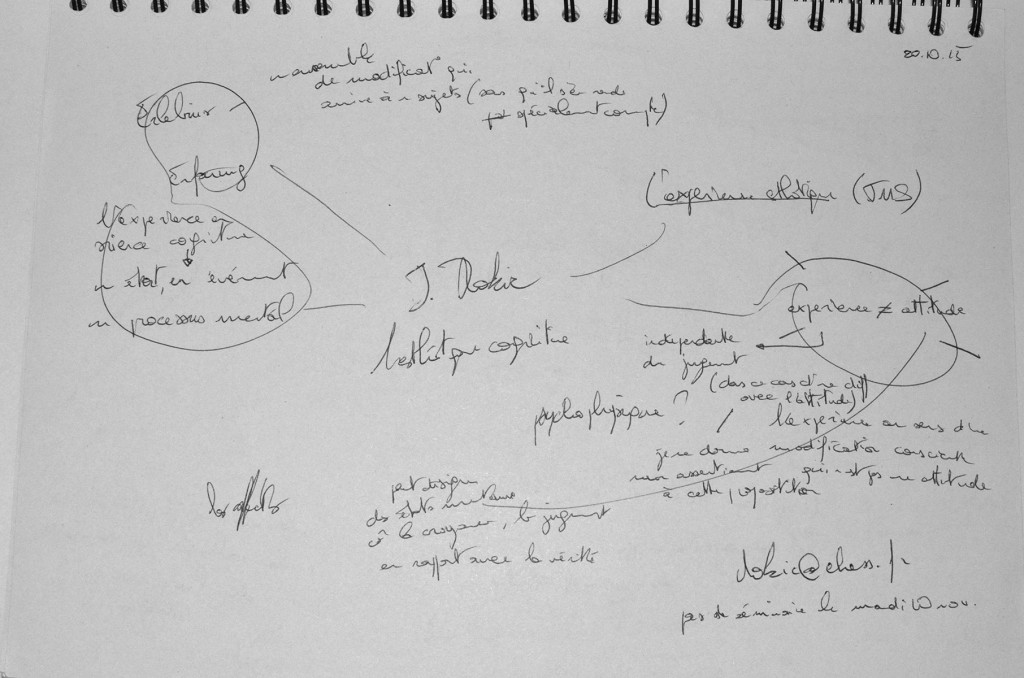 20.10.15
un ensemble
de modificat° qui
arrive à un sujets (sans qu'il s'en rende
spécialement compte)
Erlebnis
Erfarung
L'expérience esthétique (JMS)
l'expérience en
science cognitive
un état, un événement
un processus mental
J. Dokic
L'esthétique cognitive
Expérience ≠ attitude
indépendante
du jugement
(dans ce cas
avec l'attitude)
psychophysique ?
L'expérience au sens d'une
je ne donne
modification consciente
mon assentiment
qui n'est pas une attitude
à cette proposition
les affects
peut désigner
des états mentaux
où la croyance, le jugement
en rapport avec la vérité
dokic@ehess.fr
pas de séminaire le mardi 10 nov.